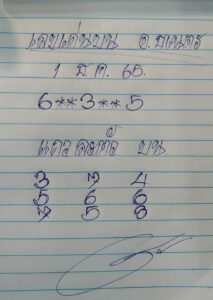 เลขเด่นบน อ.ธนกร
1 ธ.ค. 65.
6**3**5
แถว สองตัว บน
3 3 4
5 6 6
7 5 8